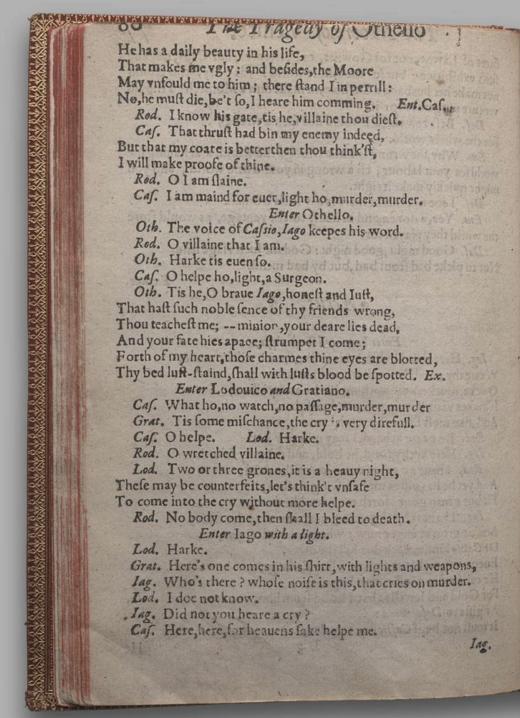 80 The Tragedy of Othello
He has a daily beauty in his life,
That makes me vgly: and beſides, the Moore
May vnfould me to him; there ſtand I in perrill:
No, he muſt die, be't ſo, I heare him comming. Ent. Caſ.
Rod. I know his gate, tis he, villaine thou dieſt.
Caſ. That thruſt had bin my enemy indeed,
But that my coate is better then thou think'ſt,
I will make proofe of thine.
Rod. O I am ſlaine.
Caſ. I am maind for euer, light ho, murder, murder.
Enter Othello.
Oth. The voice of Caſsio, Iago keepes his word.
Rod. O villaine that I am.
Oth. Harke tis euen ſo.
Caſ. O helpe ho, light, a Surgeon.
Oth. Tis he, O braue Iago, honeſt and Iuſt,
That haſt ſuch noble ſence of thy friends wrong,
Thou teacheſt me; -- minion, your deare lies dead,
And your fate hies apace; ſtrumpet I come;
Forth of my heart, thoſe charmes thine eyes are blotted,
Thy bed luſt-ſtaind, ſhall with luſts blood be ſpotted. Ex.
Enter Lodouico and Gratiano.
Caſ. What ho, no watch, no paſſage, murder, murder
Grat. Tis ſome miſchance, the cry is very direfull.
Caſ. O helpe. Lod. Harke.
Rod. O wretched villaine.
Lod. Two or three grones, it is a heauy night,
Theſe may be counterfeits, let's think't vnſafe
To come into the cry without more helpe.
Rod. No body come, then ſhall I bleed to death.
Enter Iago with a light.
Lod. Harke.
Grat. Here's one comes in his ſhirt, with lights and weapons,
Iag. Who's there? whoſe noiſe is this, that cries on murder.
Lod. I doe not know.
Iag. Did not you heare a cry?
Caſ. Here, here, for heauens ſake helpe me.
Iag.